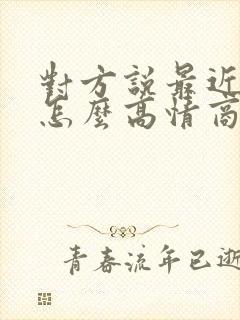 對方説最近
怎麼高情商
青春流年已逝